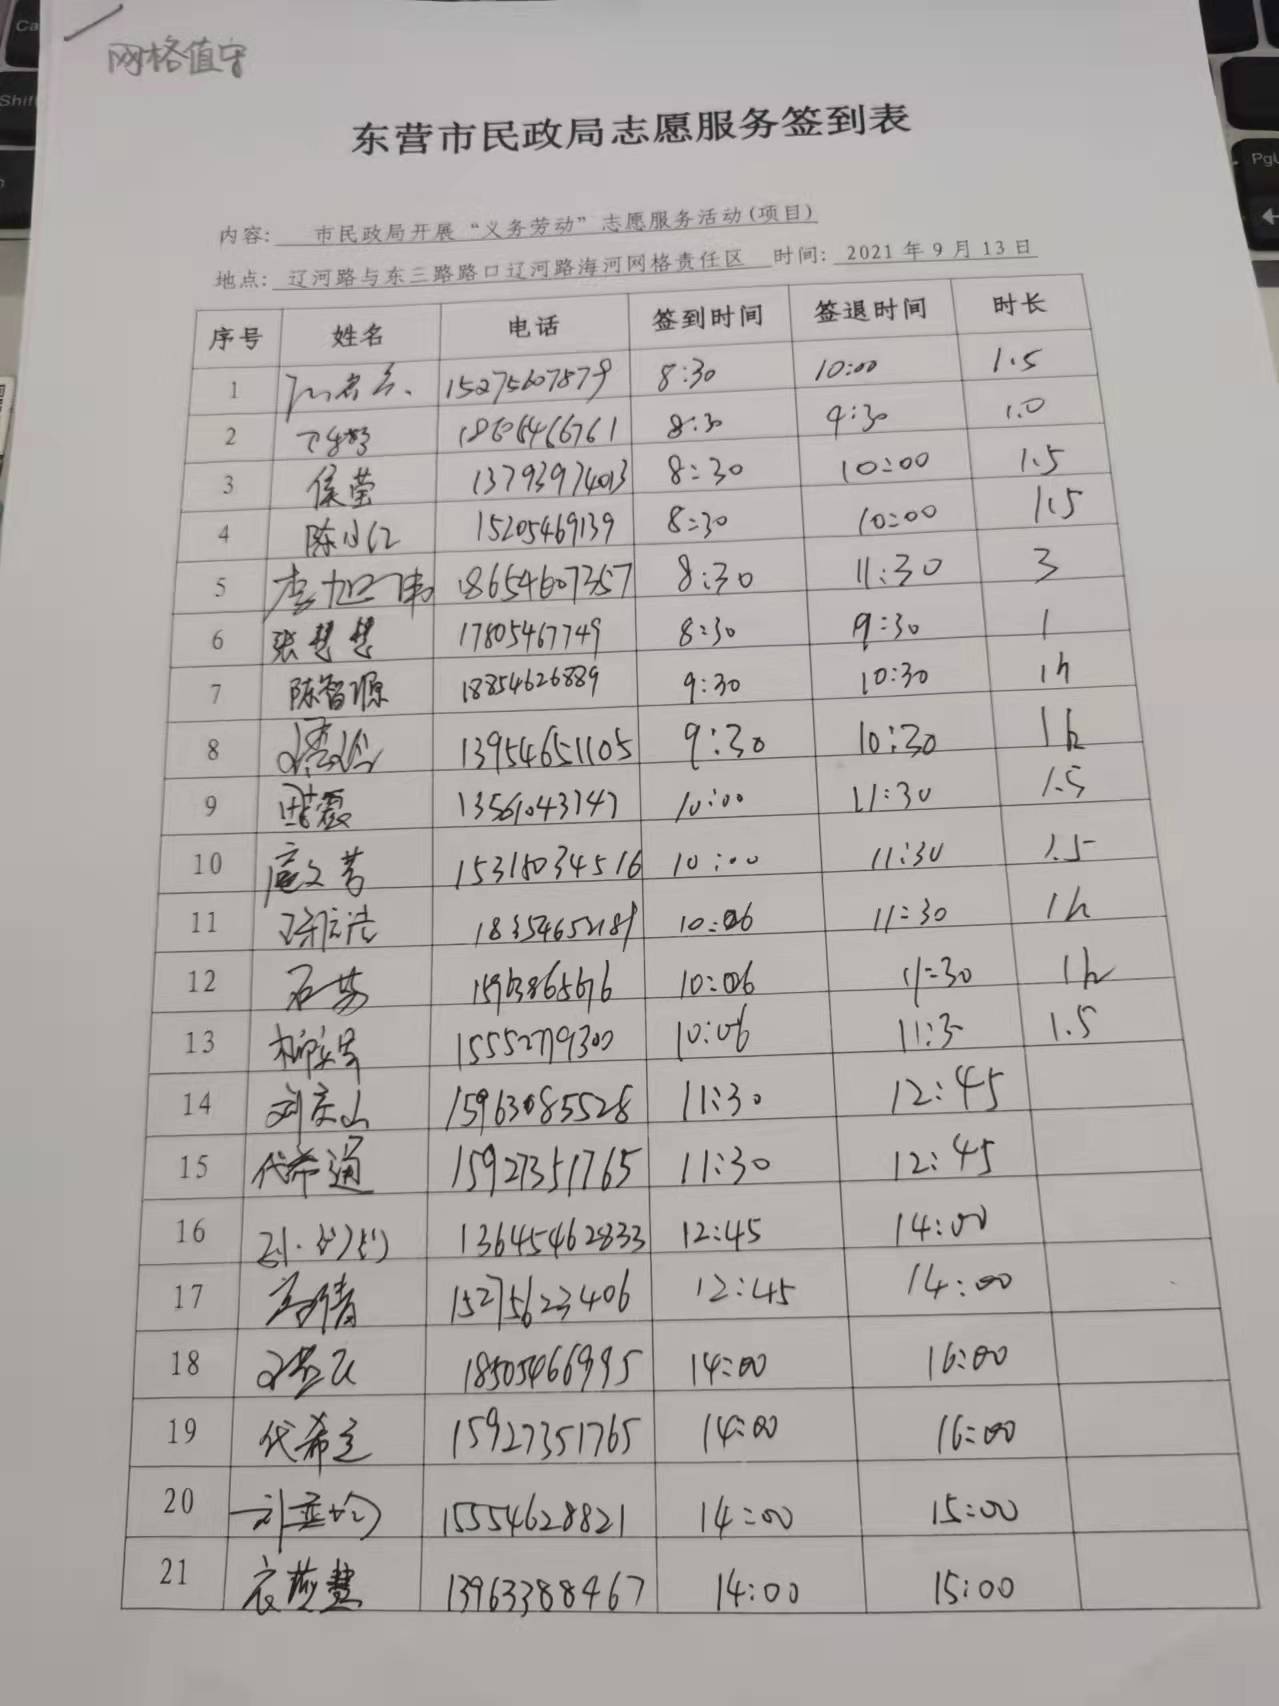 网格值守
东营市民政局志愿服务签到表
内容: 市民政局开展“义务劳动”志愿服务活动(项目)
地点: 辽河路与东三路路口辽河路海河网格责任区 时间: 2021年9月13日
序号 姓名 电话 签到时间 签退时间 时长
1 15275607879 8:30 10:00 1.5
2 18606466761 8:30 9:30 1.0
3 侯莹 13793974013 8:30 10:00 1.5
4 陈小红 15205469139 8:30 10:00 1.5
5 李旭伟 18654607357 8:30 11:30 3
6 张慧慧 17805467749 8:30 9:30 1
7 陈智源 18854626889 9:30 10:30 1h
8 13954651105 9:30 10:30 1h
9 13561043747 10:00 11:30 1.5
10 庞文芳 15318034516 10:00 11:30 1.5
11 10:06 11:30 1h
12 石芳 10:06 11:30 1h
13 15552779300 10:06 11:3 1.5
14 刘庆山 15963085528 11:30 12:45
15 代希通 15927351765 11:30 12:45
16 13645462833 12:45 14:00
17 15275623406 12:45 14:00
18 18505466995 14:00 16:00
19 代希 15927351765 14:00 16:00
20 15554628821 14:00 15:00
21 衣燕慧 13963388467 14:00 15:00